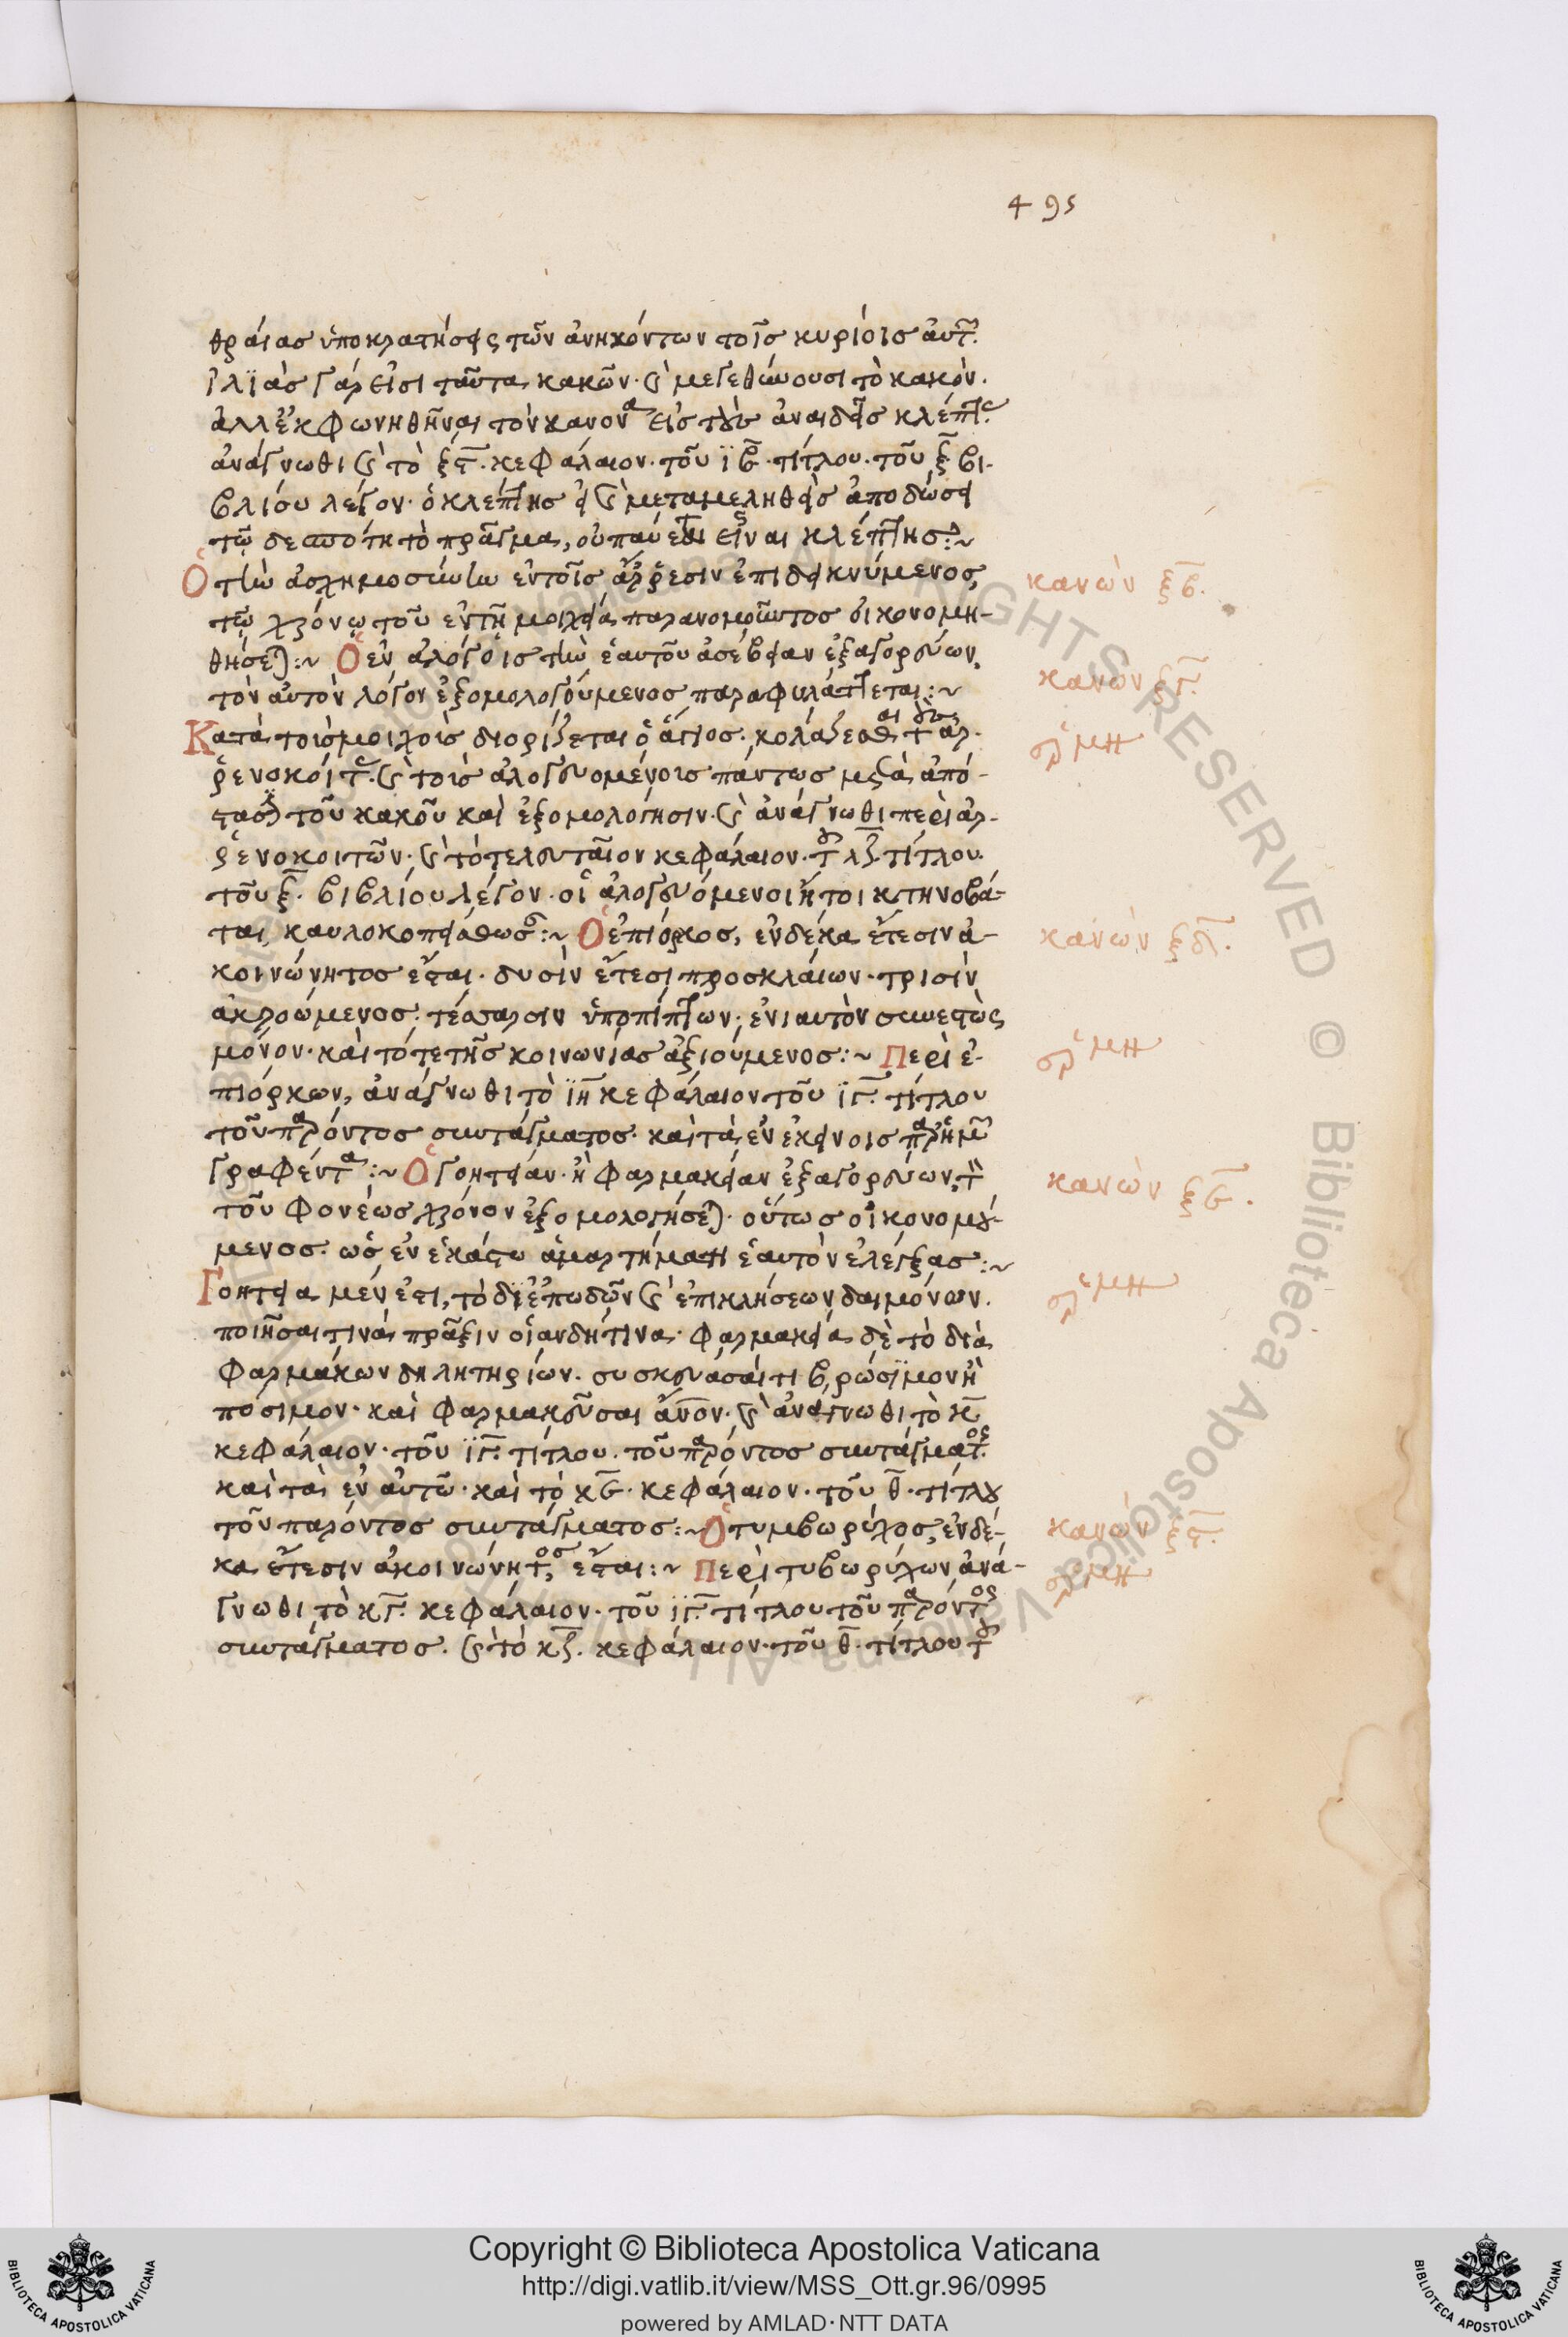 495
θραίας ὑποκρατήσεις τῶν ἀνηκόντων τοῖς κυρίοις αὐτ.
ἰλϊὰς γάρ εἰσι ταῦτα κακῶν· καὶ μεγεθύνουσι τὸ κακόν.
ἀλλ' ἐκφωνηθῆναι τὸν κανονα εἰς τοὺς ἀναιδεῖς κλέπτ.
ἀνάγνωθι καὶ τὸ ξϛ. κεφάλαιον· τοῦ ϊβ· τίτλου· τοῦ ξ βι-
βλίου λέγον· ὁ κλέπτης εἰ καὶ μεταμεληθεὶς ἀποδώσει
τῷ δεσπότη τὸ πρᾶγμα, οὐ παύεται εἶναι κλέπτης:~
Ὁ τὴν ἀσχημοσύνην ἐν τοῖς ἄρρεσιν ἐπιδεικνύμενος, κανὼν ξβ.
τῷ χρόνῳ τοῦ ἐν τῇ μοιχεία παρανομοῦντος οἰκονομη-
θήσε):~ Ὁ ἐν ἀλόγοις τὴν ἑαυτοῦ ἀσέβειαν ἐξαγορεύων, κανὼν ξγ.
τὸν αὐτὸν λόγον ἐξομολογούμενος παραφυλάττεται:~
Κατὰ τοὺς μοιχοὺς διορίζεται ὁ ἅγιος· κολάζεσθαι τοὺς ἀρ- ἑρμη
ρενοκοίτ. καὶ τοὺς ἀλογευομένους πάντως μετὰ ἀπό-
στασιν τοῦ κακοῦ καὶ ἐξομολογησιν· καὶ ἀνάγνωθι περὶ ἀρ-
ρενοκοιτῶν· καὶ τὸ τελευταῖον κεφάλαιον· τοῦ λζ. τίτλου.
τοῦ ξ. βιβλίου λέγον· οἱ ἀλογευόμενοι ἤτοι κτηνοβά-
ται, καυλοκοπείσθωσ:~ Ὁ ἐπίορκος, ἐνδέκα ἔτεσιν ἀ- κανὼν ξδ.
κοινώνητος ἔσται· δυσὶν ἔτεσι προσκλαίων· τρισὶν
ἀκροώμενος· τέσσαρσιν ὑποπίπτων· ἐνιαυτὸν συνεστὼς
μόνον· καὶ τότε τῆς κοινωνίας ἀξιούμενος:~ Περὶ ἐ- ἑρμη
πιόρκων, ἀνάγνωθι τὸ ϊη κεφάλαιον τοῦ ϊγ. τίτλου
τοῦ παρόντος συντάγματος· καὶ τὰ ἐν ἐκείνοις παρ' ἡμῶ
γραφέντα:~ Ὁ γοητείαν· ἢ φαρμακείαν ἐξαγορεύων, τὸν κανὼν ξε.
τοῦ φονέως χρόνον ἐξομολογήσε)· οὕτως οἰκονομού-
μενος· ὡς ἐν ἑκάστω ἁμαρτήματι ἑαυτὸν ἐλέγξας:~
Γοητεία μέν ἐστι, τὸ δι' ἐπωδῶν καὶ ἐπικλήσεων δαιμόνων. ἑρμη
ποιῆσαι τινὰ πρᾶξιν οἱανδήτινα· φαρμακεία δὲ τὸ διὰ
φαρμάκων δηλητηρίων· συσκευάσαί τι βρώσϊμον ἢ
πόσιμον· καὶ φαρμακεῦσαι ἄνον· καὶ ἀνάγνωθι τὸ κ
κεφάλαιον· τοῦ ϊγ. τίτλου· τοῦ παρόντος συντάγματος.
καὶ τὰ ἐν αὐτῷ· καὶ τὸ κε· κεφάλαιον· τοῦ θ· τίτλου
τοῦ παρόντος συντάγματος:~ Ὁ τυμβωρύχος, ἐνδέ- κανὼν ξϛ.
κα ἔτεσιν ἀκοινώνητος, ἔσται:~ Περὶ τυβωρύχων ἀνά- ἑρμη
γνωθι τὸ κγ. κεφάλαιον· τοῦ ϊγ. τίτλου τοῦ παρόντος
συντάγματος. καὶ τὸ κζ. κεφάλαιον· τοῦ θ· τίτλου τοῦ
Biblioteca Apostolica Vaticana
ALL RIGHTS RESERVED © Biblioteca Apostolica Vaticana
Copyright © Biblioteca Apostolica Vaticana
http://digi.vatlib.it/view/MSS_Ott.gr.96/0995
powered by AMLAD·NTT DATA
BIBLIOTECA APOSTOLICA VATICANA
BIBLIOTECA APOSTOLICA VATICANA